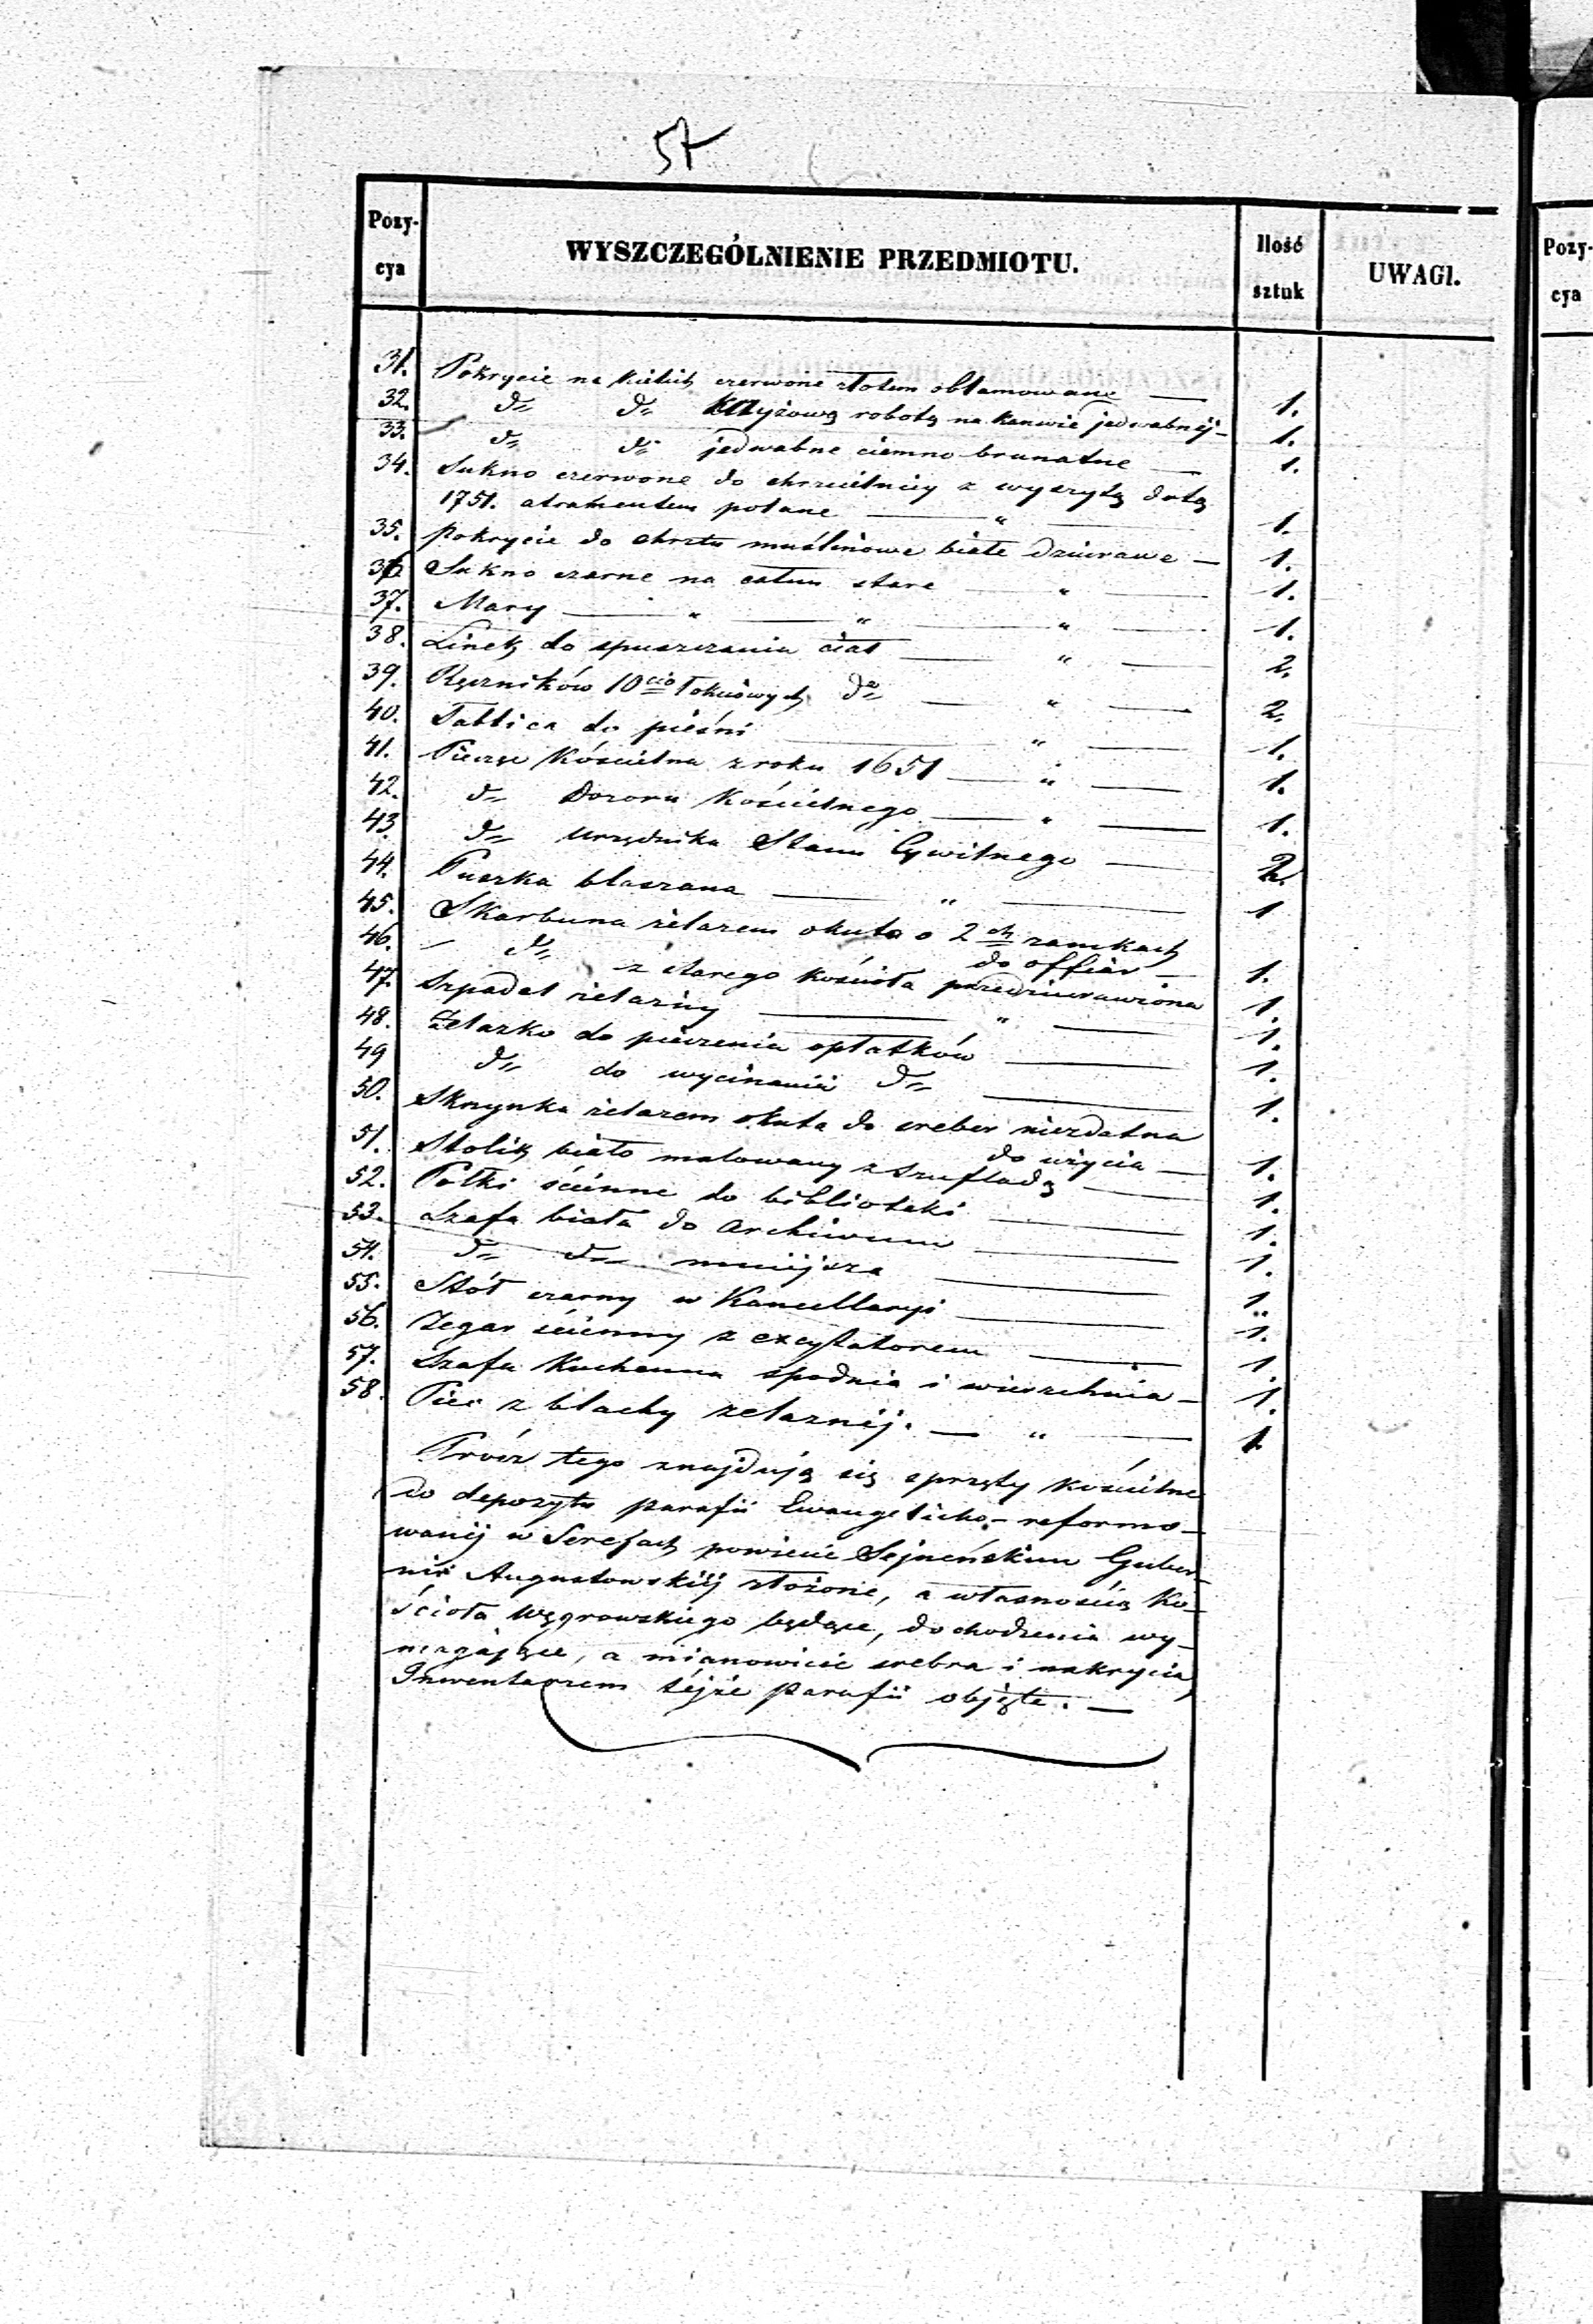 57
Pozy-
cya
WYSZCZEGÓLNIENIE PRZEDMIOTU.
Ilość
sztuk
UWAGI.
Pozy-
cya
31. Pokrycie na kielich czerwone złotem oblamowane — 1.
32. d„ d„ krzyżową robotą na kanwie jedwabnéj – 1.
33. d„ d„ jedwabne ciemno brunatne — 1.
34. Sukno czerwone do chrzcielnicy z wyszytą datą
1751. atramentem polane — „ — 1.
35. pokrycie do chrztu muślinowe białe dziurawe — 1.
36 Sukno czarne na całun stare — „ — 1.
37. Mary — „ — „ — „ — 1.
38. Linek do spuszczania ciał — „ — 2.
39. Ręczników 10cio łokciowych do„ — „ — 2.
40. Tablica do pieśni — „ — 1.
41. Pieczęć Kościelna z roku 1651 — „ — 1.
42. d„ Dozoru Kościelnego — „ — 1.
43. d„ Urzędnika Stanu Cywilnego — 2.
44. Puszka blaszana — „ — 1
45. Skarbuna żelazem okuta o 2ch zamkach
do offiar — 1.
46. d„ z starego kościoła przedziurawiona 1.
47. Szpadel żelazny — „ — 1.
48. Żelazko do pieczenia opłatków — 1.
49 d„ do wycinania d„ — 1.
50. Skrzynka żelazem okuta do sreber niezdatna
do użycia — 1.
51. Stolik biało malowany z szufladą — 1.
52. Półki ścienne do biblioteki — 1.
53. Szafa biała do Archiwum — 1.
54. d„ d„ mniejsza — 1.
55. Stół czarny w Kancellaryi — 1.
56. Zegar ścienny z excytatorem — 1.
57. Szafa Kuchenna spodnia i wierzchnia — 1.
58. Piec z blachy żelaznéj. — „ — 1.
Prócz tego znajdują się sprzęty kościelne
do depozytu parafii Ewangelicko-reformo-
wanéj w Serejach powiecie Sejneńskim Guber-
nii Augustowskiéj złożone, a własnością Ko-
ścioła Węgrowskiego będące, dochodzenia wy-
magające, a mianowicie srebra i nakrycia,
Inwentarzem téjże parafii objęte. —